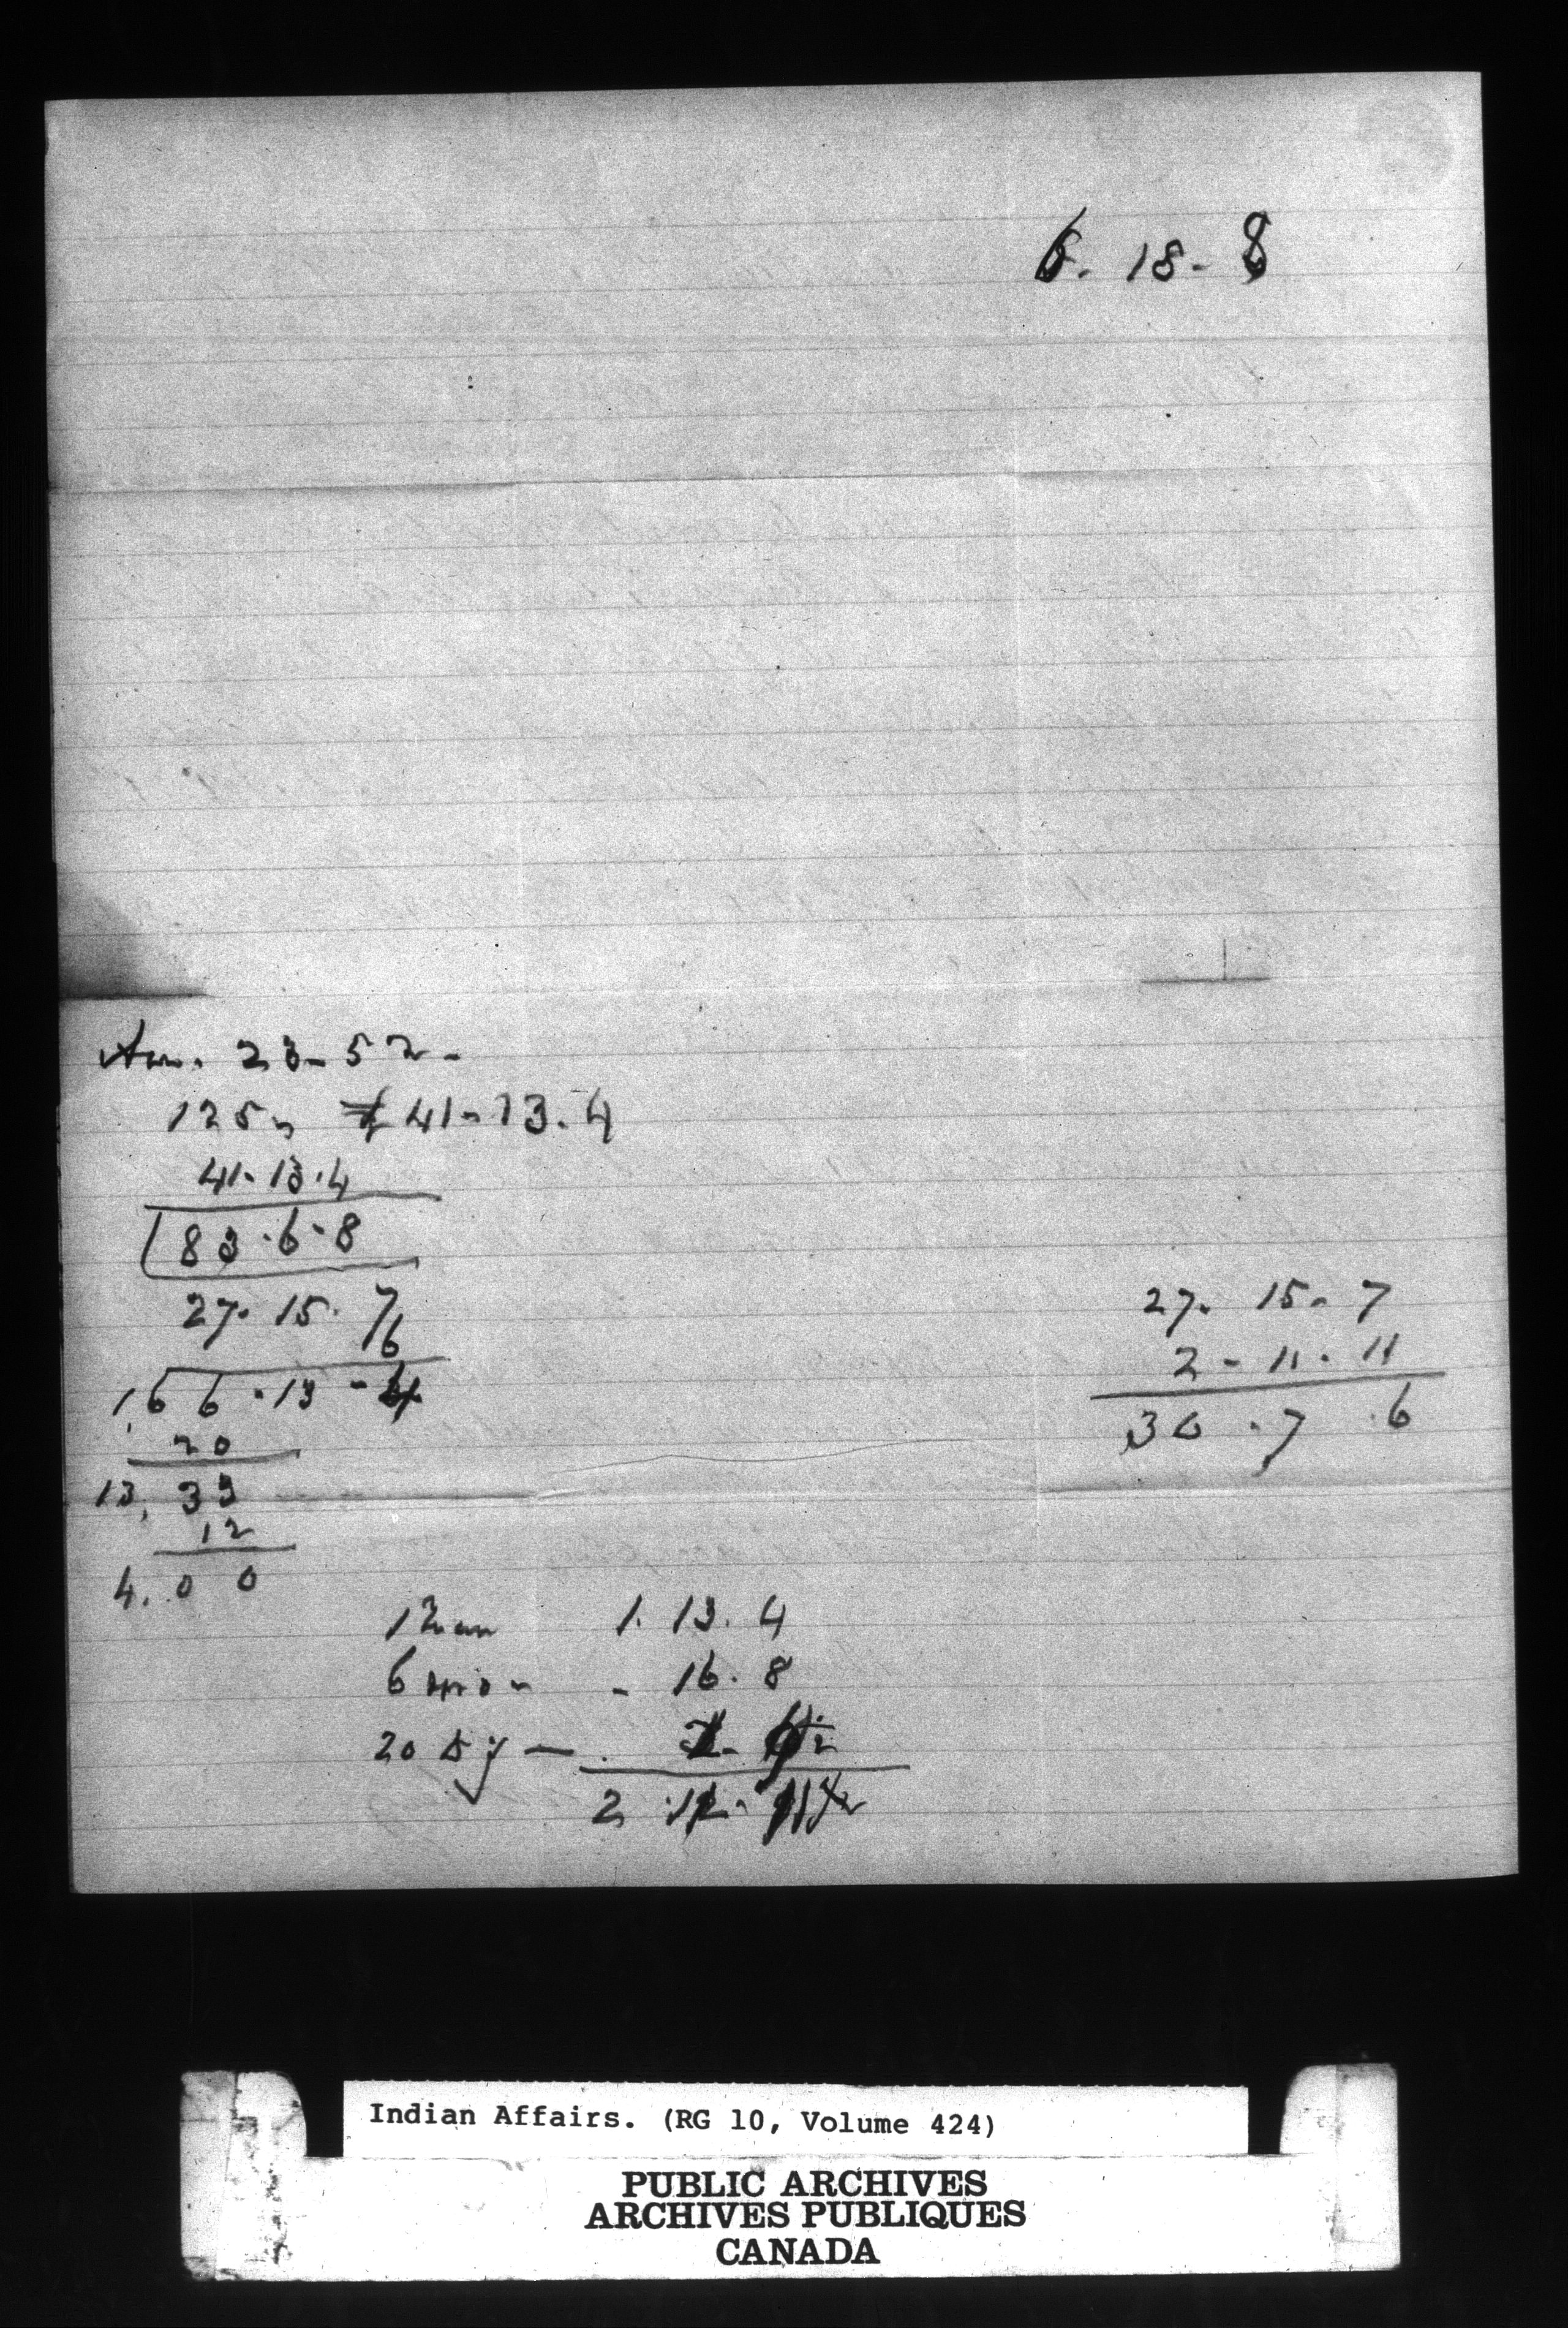 6. 18- 8
23-52-
125 £41-13.4
41.13.4
83.6.8
27.15.7
6
1,66.13-4
20
13,33
12
4.00
27. 15- 7
2-11.11
30.7.6
1 1.13.4
6 - 16.8
20
2
Indian Affairs. (RG 10, Volume 424)
PUBLIC ARCHIVES
ARCHIVES PUBLIQUES
CANADA